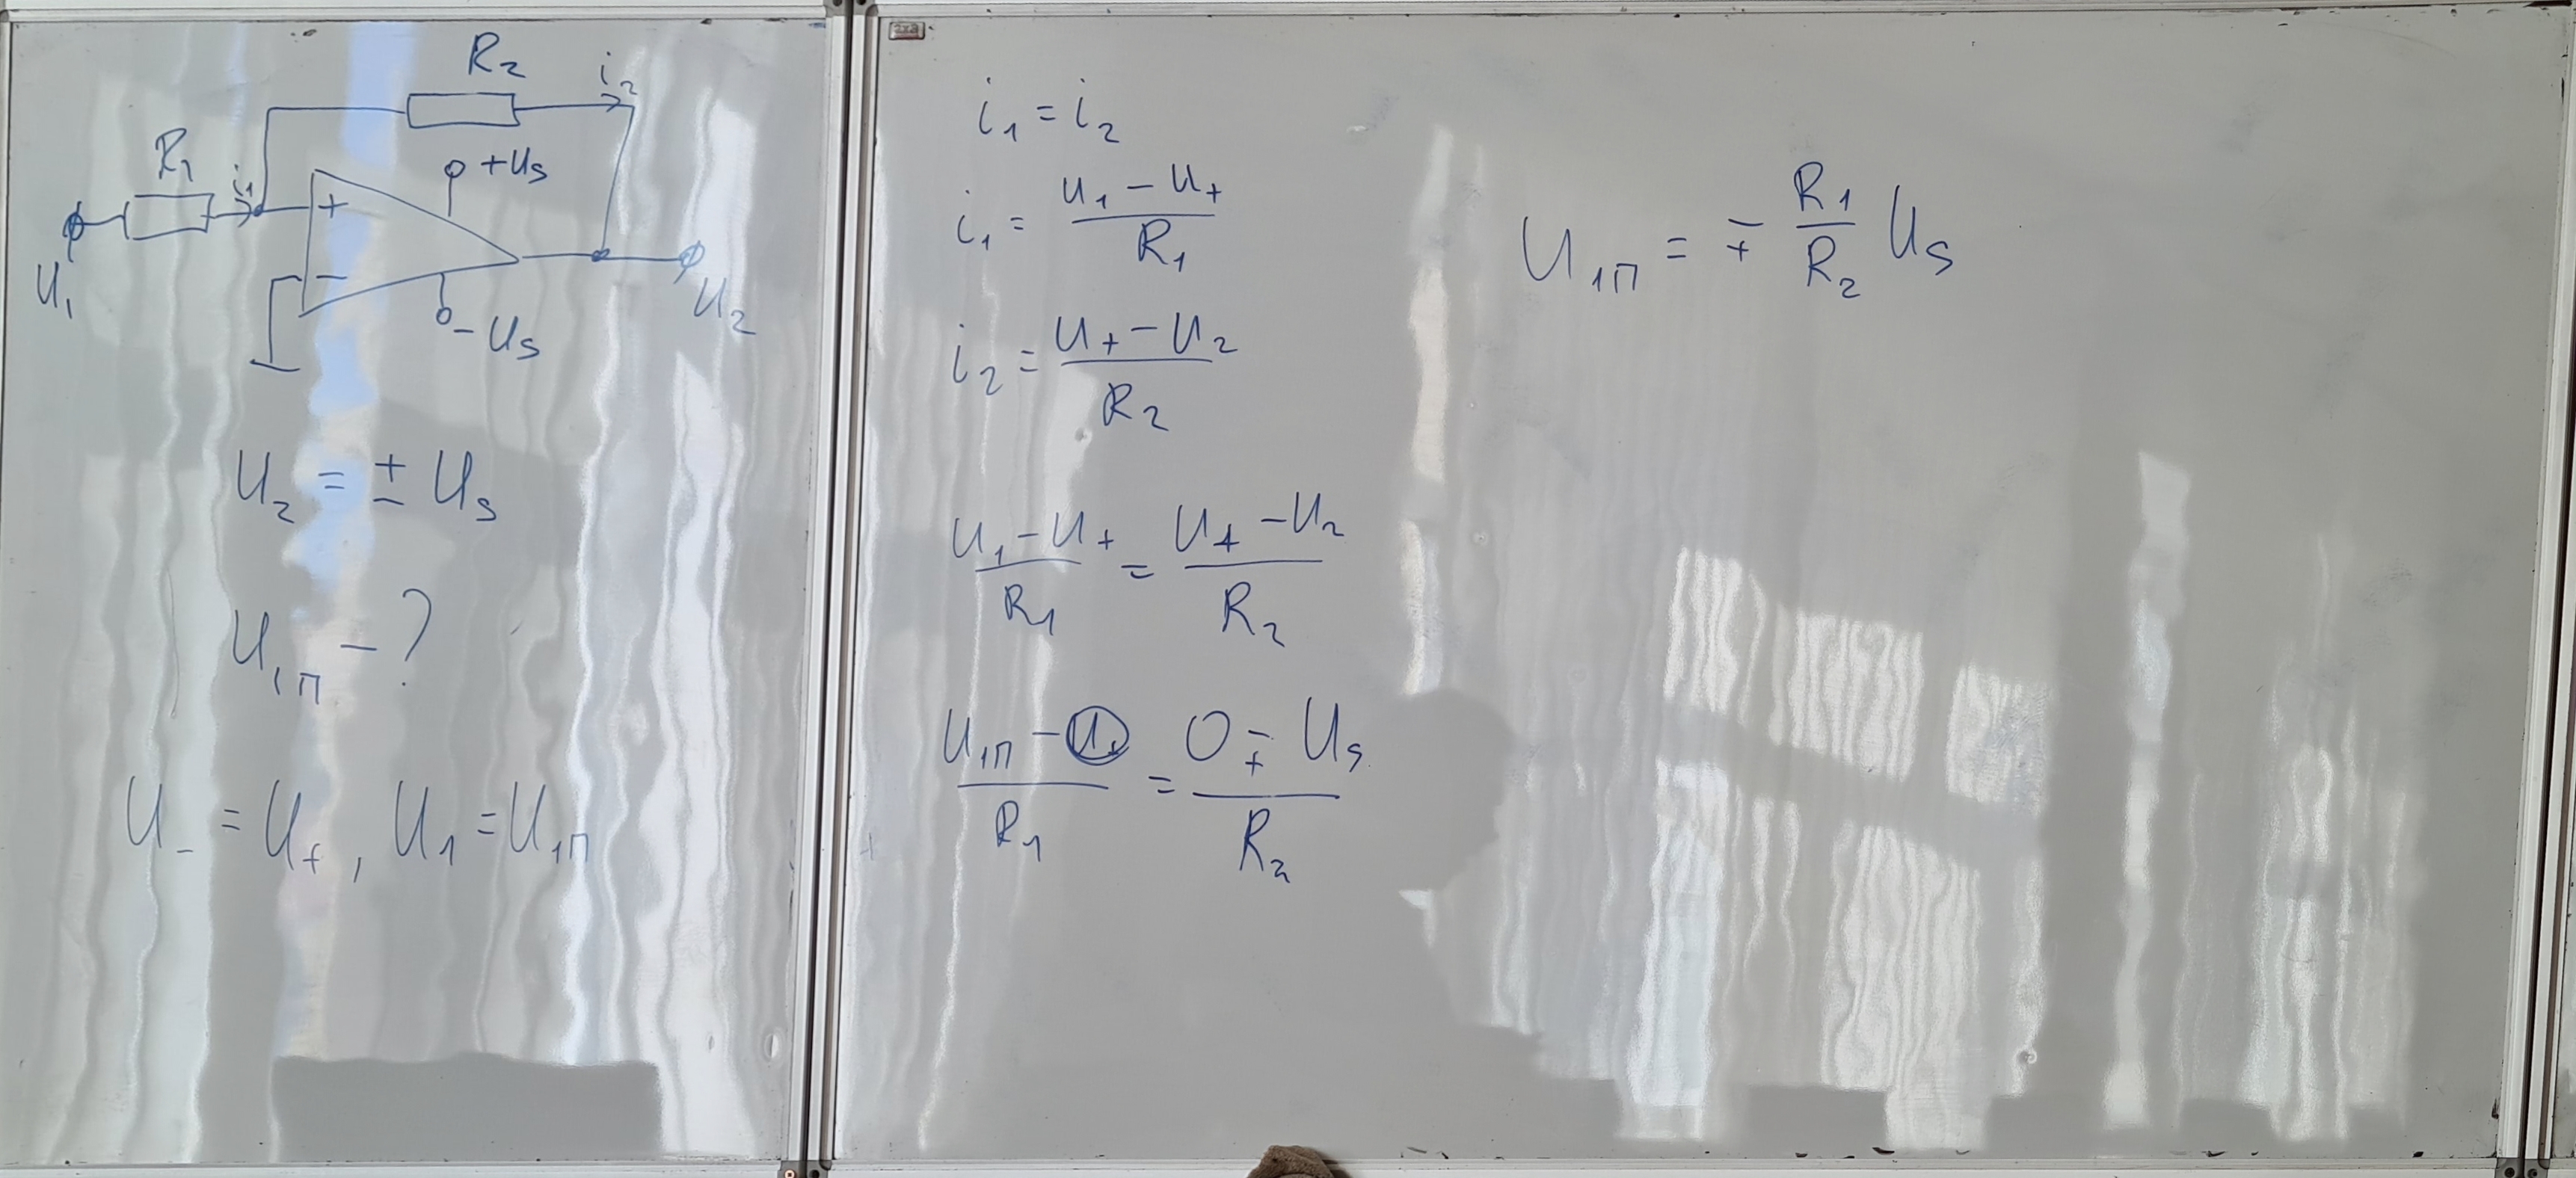 R₂
i₂
R₁
i₁
+Us
+
−
−Us
U₁
U₂
U₂ = ± Us
U₁п − ?
U₋ = U₊, U₁ = U₁п
i₁ = i₂
i₁ = (U₁ − U₊) / R₁
i₂ = (U₊ − U₂) / R₂
(U₁ − U₊) / R₁ = (U₊ − U₂) / R₂
(U₁п − U₊) / R₁ = (0 ∓ Us) / R₂
U₁п = ∓ (R₁ / R₂) Us